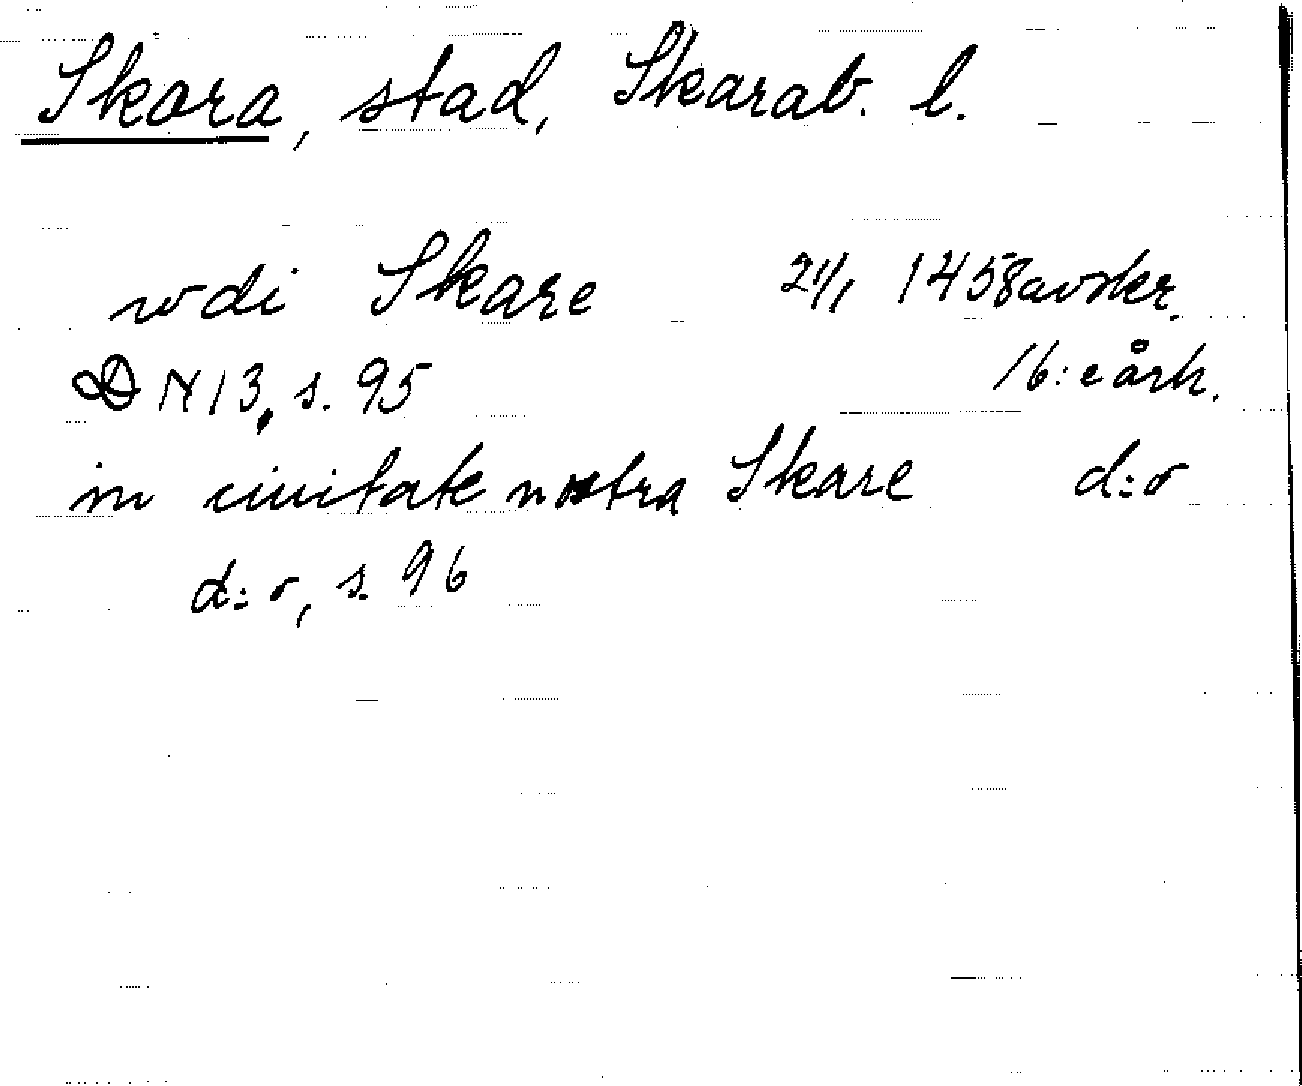 Skara, stad, Skarab. l.
wdi Skare 21/1 1458 avskr.
DN 13, s. 95 16:e årh.
in ciuitate nostra Skare d:o
d:o, s. 96